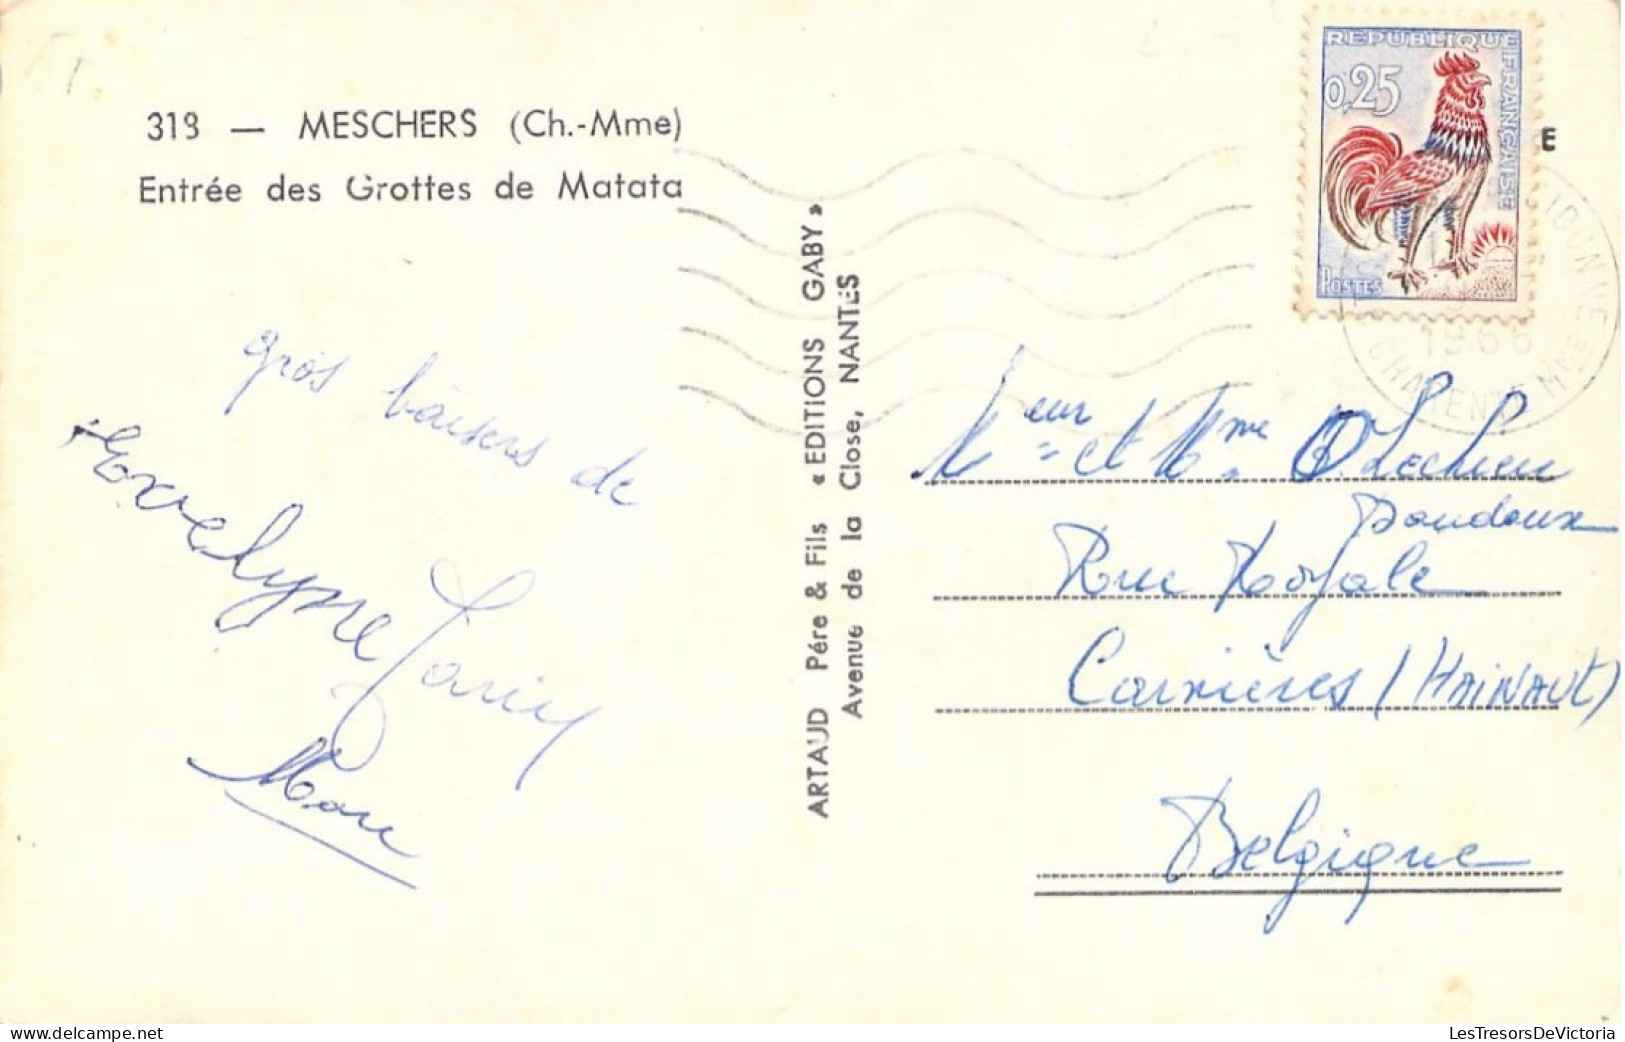 318 — MESCHERS (Ch.-Mme)
Entrée des Grottes de Matata
gros baisers de
Evelyne
ARTAUD Père & Fils « EDITIONS GABY »
Avenue de la Close, NANTES
REPUBLIQUE FRANÇAISE
0,25
POSTES
E
1966
CHARENTE MME
Meur et Mme O. Lechien
Daudoux
Rue Royale
Carnières (HAINAUT)
Belgique
LesTresorsDeVictoria